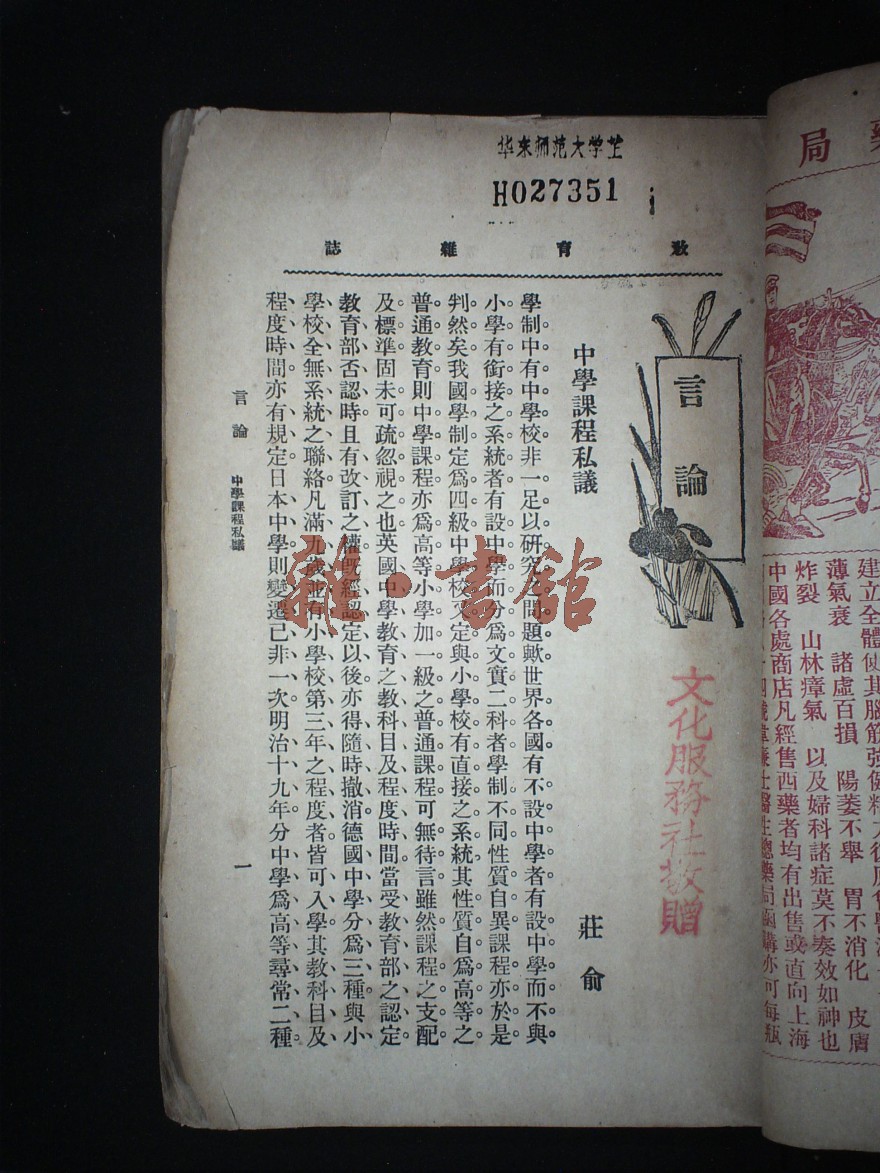 华东师范大学
H027351
教育雜誌
言論
中學課程私議
莊俞
學制中有中學校非一足以研究之問題歟世界各國有不設中學者有設中學而不與
小學有銜接之系統者有設中學而分爲文實二科者學制不同性質自異課程亦於是
判然矣我國學制定爲四級中學校定與小學校有直接之系統其性質自爲高等之
普通教育則中學課程亦爲高等小學加一級之普通課程可無待言雖然課程之支配
及標準固未可疏忽視之也英國中學教育之教科目及程度時間當受教育部之認定
教育部否認時且有改訂之權既經認定以後亦得隨時撤消德國中學分爲三種與小
學校全無系統之聯絡凡滿九歲並有小學校第三年之程度者皆可入學其教科目及
程度時間亦有規定日本中學則變遷已非一次明治十九年分中學爲高等尋常二種
言論 中學課程私議
一
雜·書館
文化服務社敬贈
藥局
建立全體使其腦筋強健精力復原
薄氣衰 諸虛百損 陽萎不舉 胃不消化 皮膚
炸裂 山林瘴氣 以及婦科諸症莫不奏效如神也
中國各處商店凡經售西藥者均有出售或直向上海
韋廉士醫生總藥局函購亦可每瓶